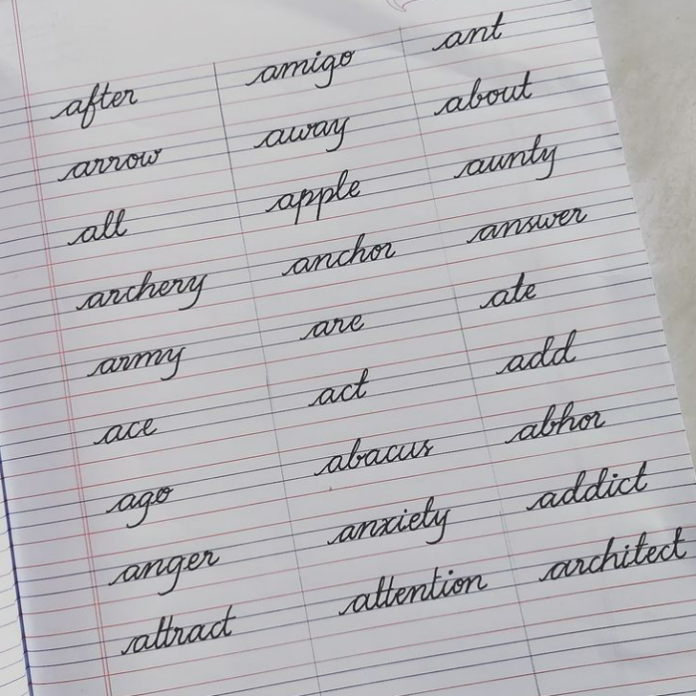 after amigo ant
arrow away about
all apple aunty
archery anchor answer
army are ate
ace act add
ago abacus abhor
anger anxiety addict
attract attention architect